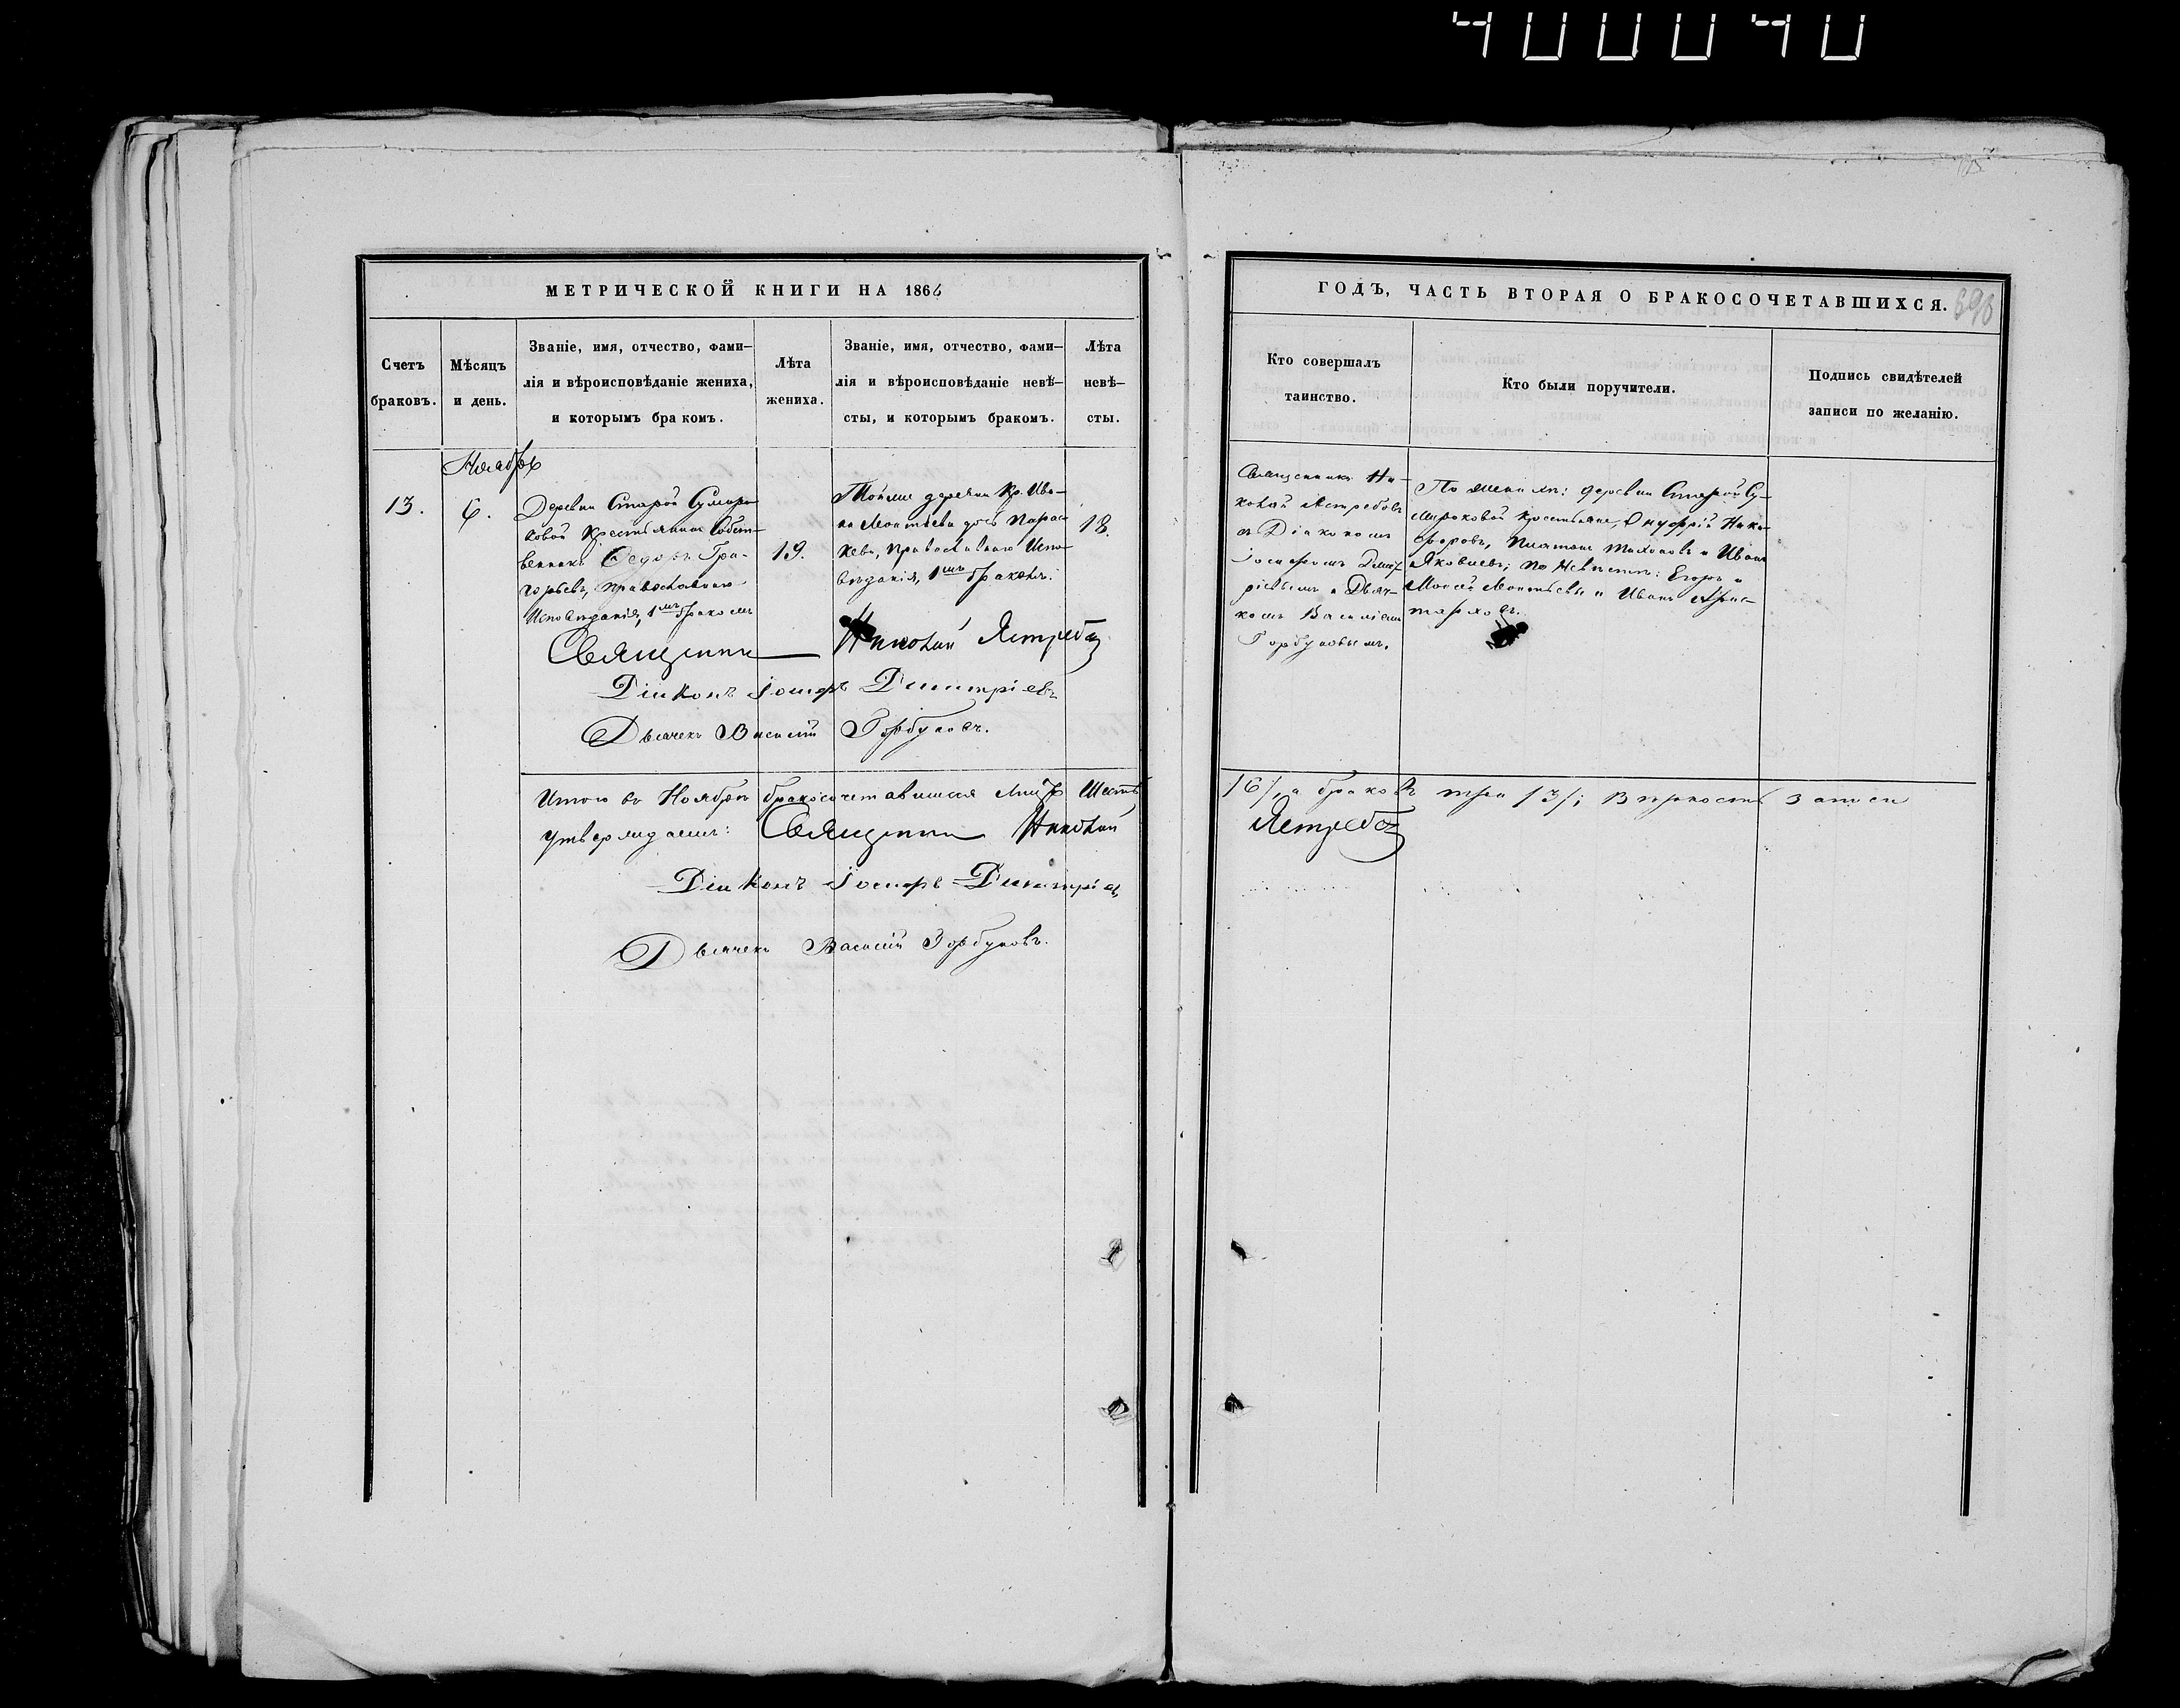 400040
МЕТРИЧЕСКОЙ КНИГИ НА 1866
Счетъ
браковъ.
Мѣсяцъ
и день.
Званіе, имя, отчество, фами-
лія и вѣроисповѣданіе жениха,
и которымъ бракомъ.
Лѣта
жениха.
Званіе, имя, отчество, фами-
лія и вѣроисповѣданіе невѣ-
сты, и которымъ бракомъ.
Лѣта
невѣ-
сты.
Ноябрь
13.
6.
Деревни Старой Сумаро-
ковой Крестьянинъ Собст-
венникъ Ѳедоръ Гри-
горьевъ, православнаго
Исповѣданія, 1мъ бракомъ
19.
Той же деревни Кр. Ива-
на Леонтьева дочь Парас-
кева, православнаго Испо-
вѣданія, 1мъ бракомъ.
18.
Священникъ Николай Ястребовъ
Діаконъ Іосифъ Димитріевъ
Дьячекъ Василій Горбуновъ.
Итого въ Ноябрѣ бракосочетавшихся лицъ Шесть
утверждаемъ: Священникъ Николай
Діаконъ Іосифъ Димитріевъ
Дьячекъ Василій Горбуновъ.
ГОДЪ, ЧАСТЬ ВТОРАЯ О БРАКОСОЧЕТАВШИХСЯ.
Кто совершалъ
таинство.
Кто были поручители.
Подпись свидѣтелей
записи по желанію.
Священникъ Ни-
колай Ястребовъ
съ Діакономъ
Іосифомъ Димит-
ріевымъ и Дьяч-
комъ Василіемъ
Горбуновымъ.
По женихѣ: деревни Старой Су-
мароковой крестьяне, Онуфрій Ники-
форовъ, Платонъ Тихоновъ и Иванъ
Яковлевъ; по невѣстѣ: Егоръ и
Моисей Леонтьевы и Иванъ Арис-
тарховъ.
/6/, а браковъ три /3/; Вѣрность записи
Ястребовъ